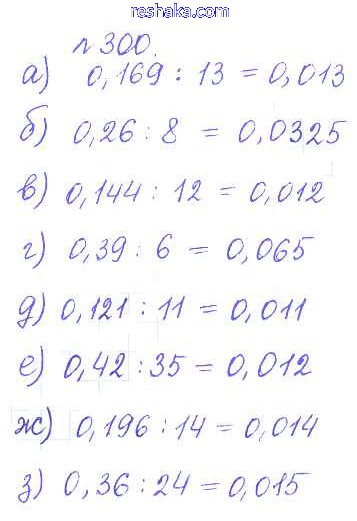 reshaka.com
№300.
а) 0,169 : 13 = 0,013
б) 0,26 : 8 = 0,0325
в) 0,144 : 12 = 0,012
г) 0,39 : 6 = 0,065
д) 0,121 : 11 = 0,011
е) 0,42 : 35 = 0,012
ж) 0,196 : 14 = 0,014
з) 0,36 : 24 = 0,015